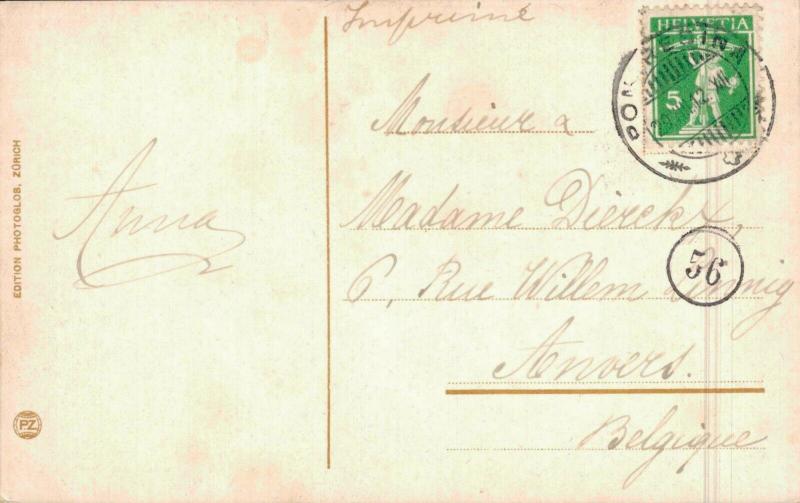 Imprimé
HELVETIA
5
PONTRESINA
Monsieur &
Madame Dierckx,
6, Rue Willem Linnig
56
Anvers.
Belgique
Anna
EDITION PHOTOGLOB, ZÜRICH
PZ